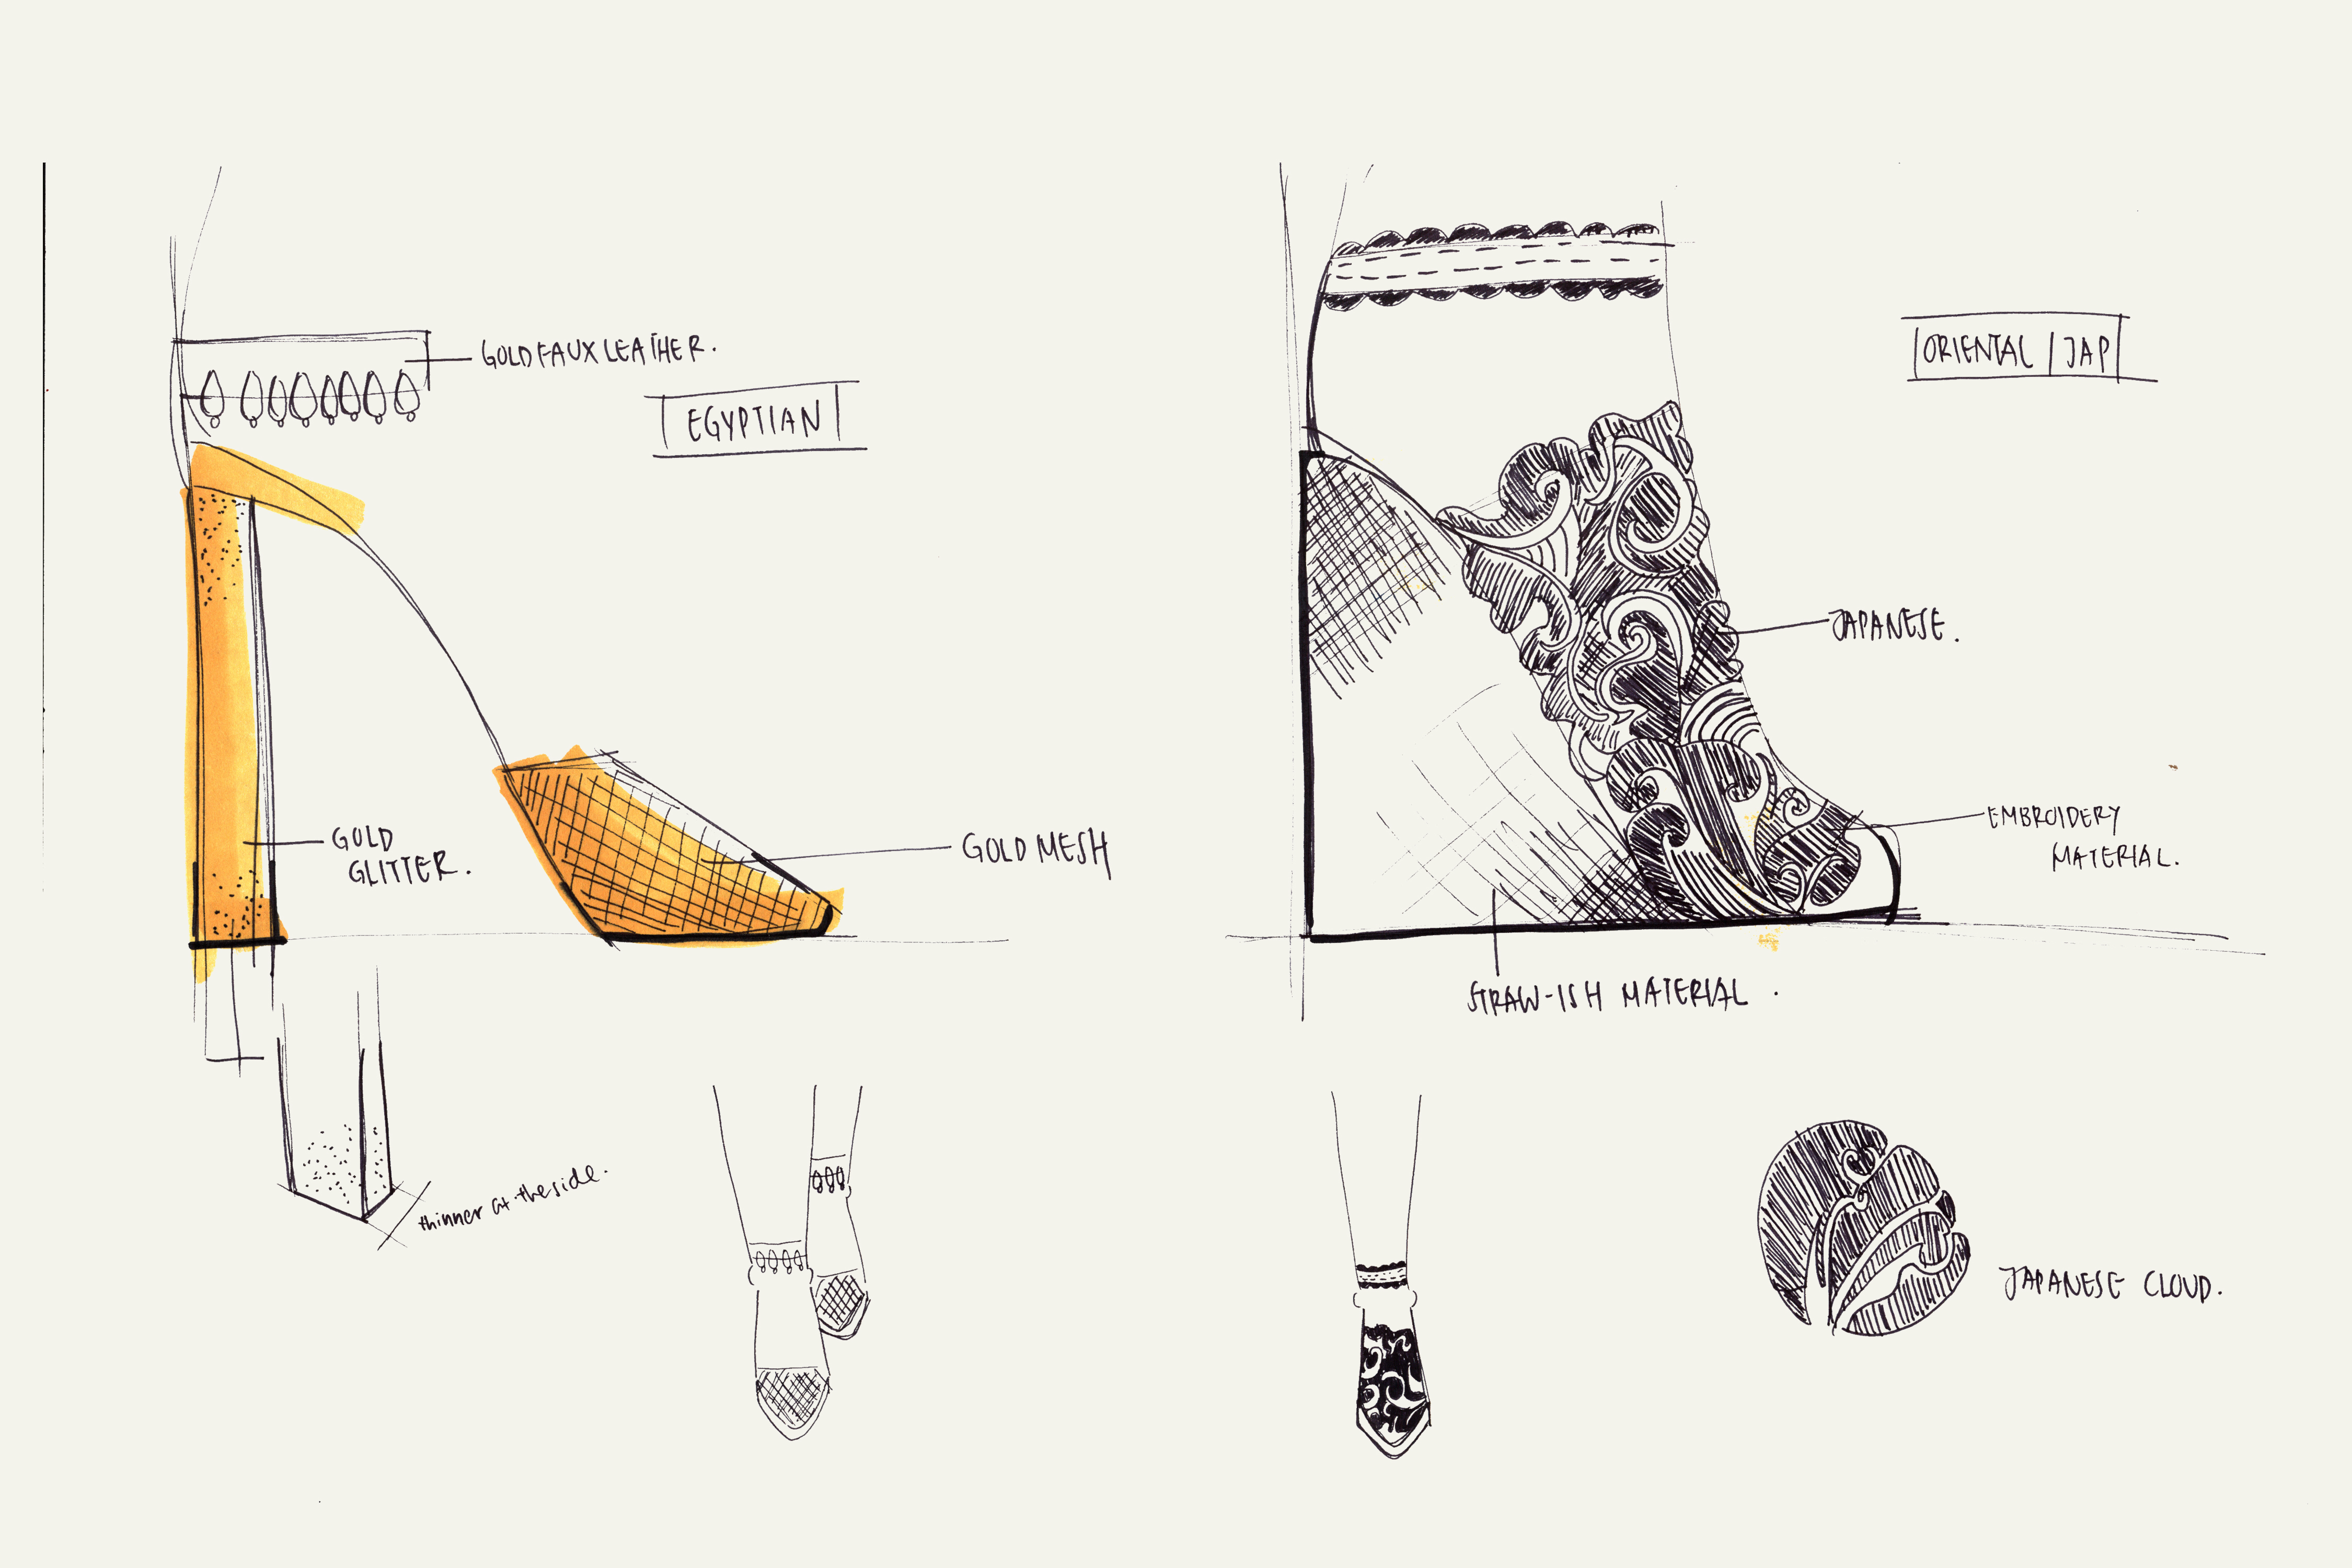 GOLD FAUX LEATHER.
EGYPTIAN
GOLD
GLITTER.
GOLD MESH
thinner at the side.
ORIENTAL | JAP
JAPANESE.
EMBROIDERY
MATERIAL.
STRAW-ISH MATERIAL.
JAPANESE CLOUD.